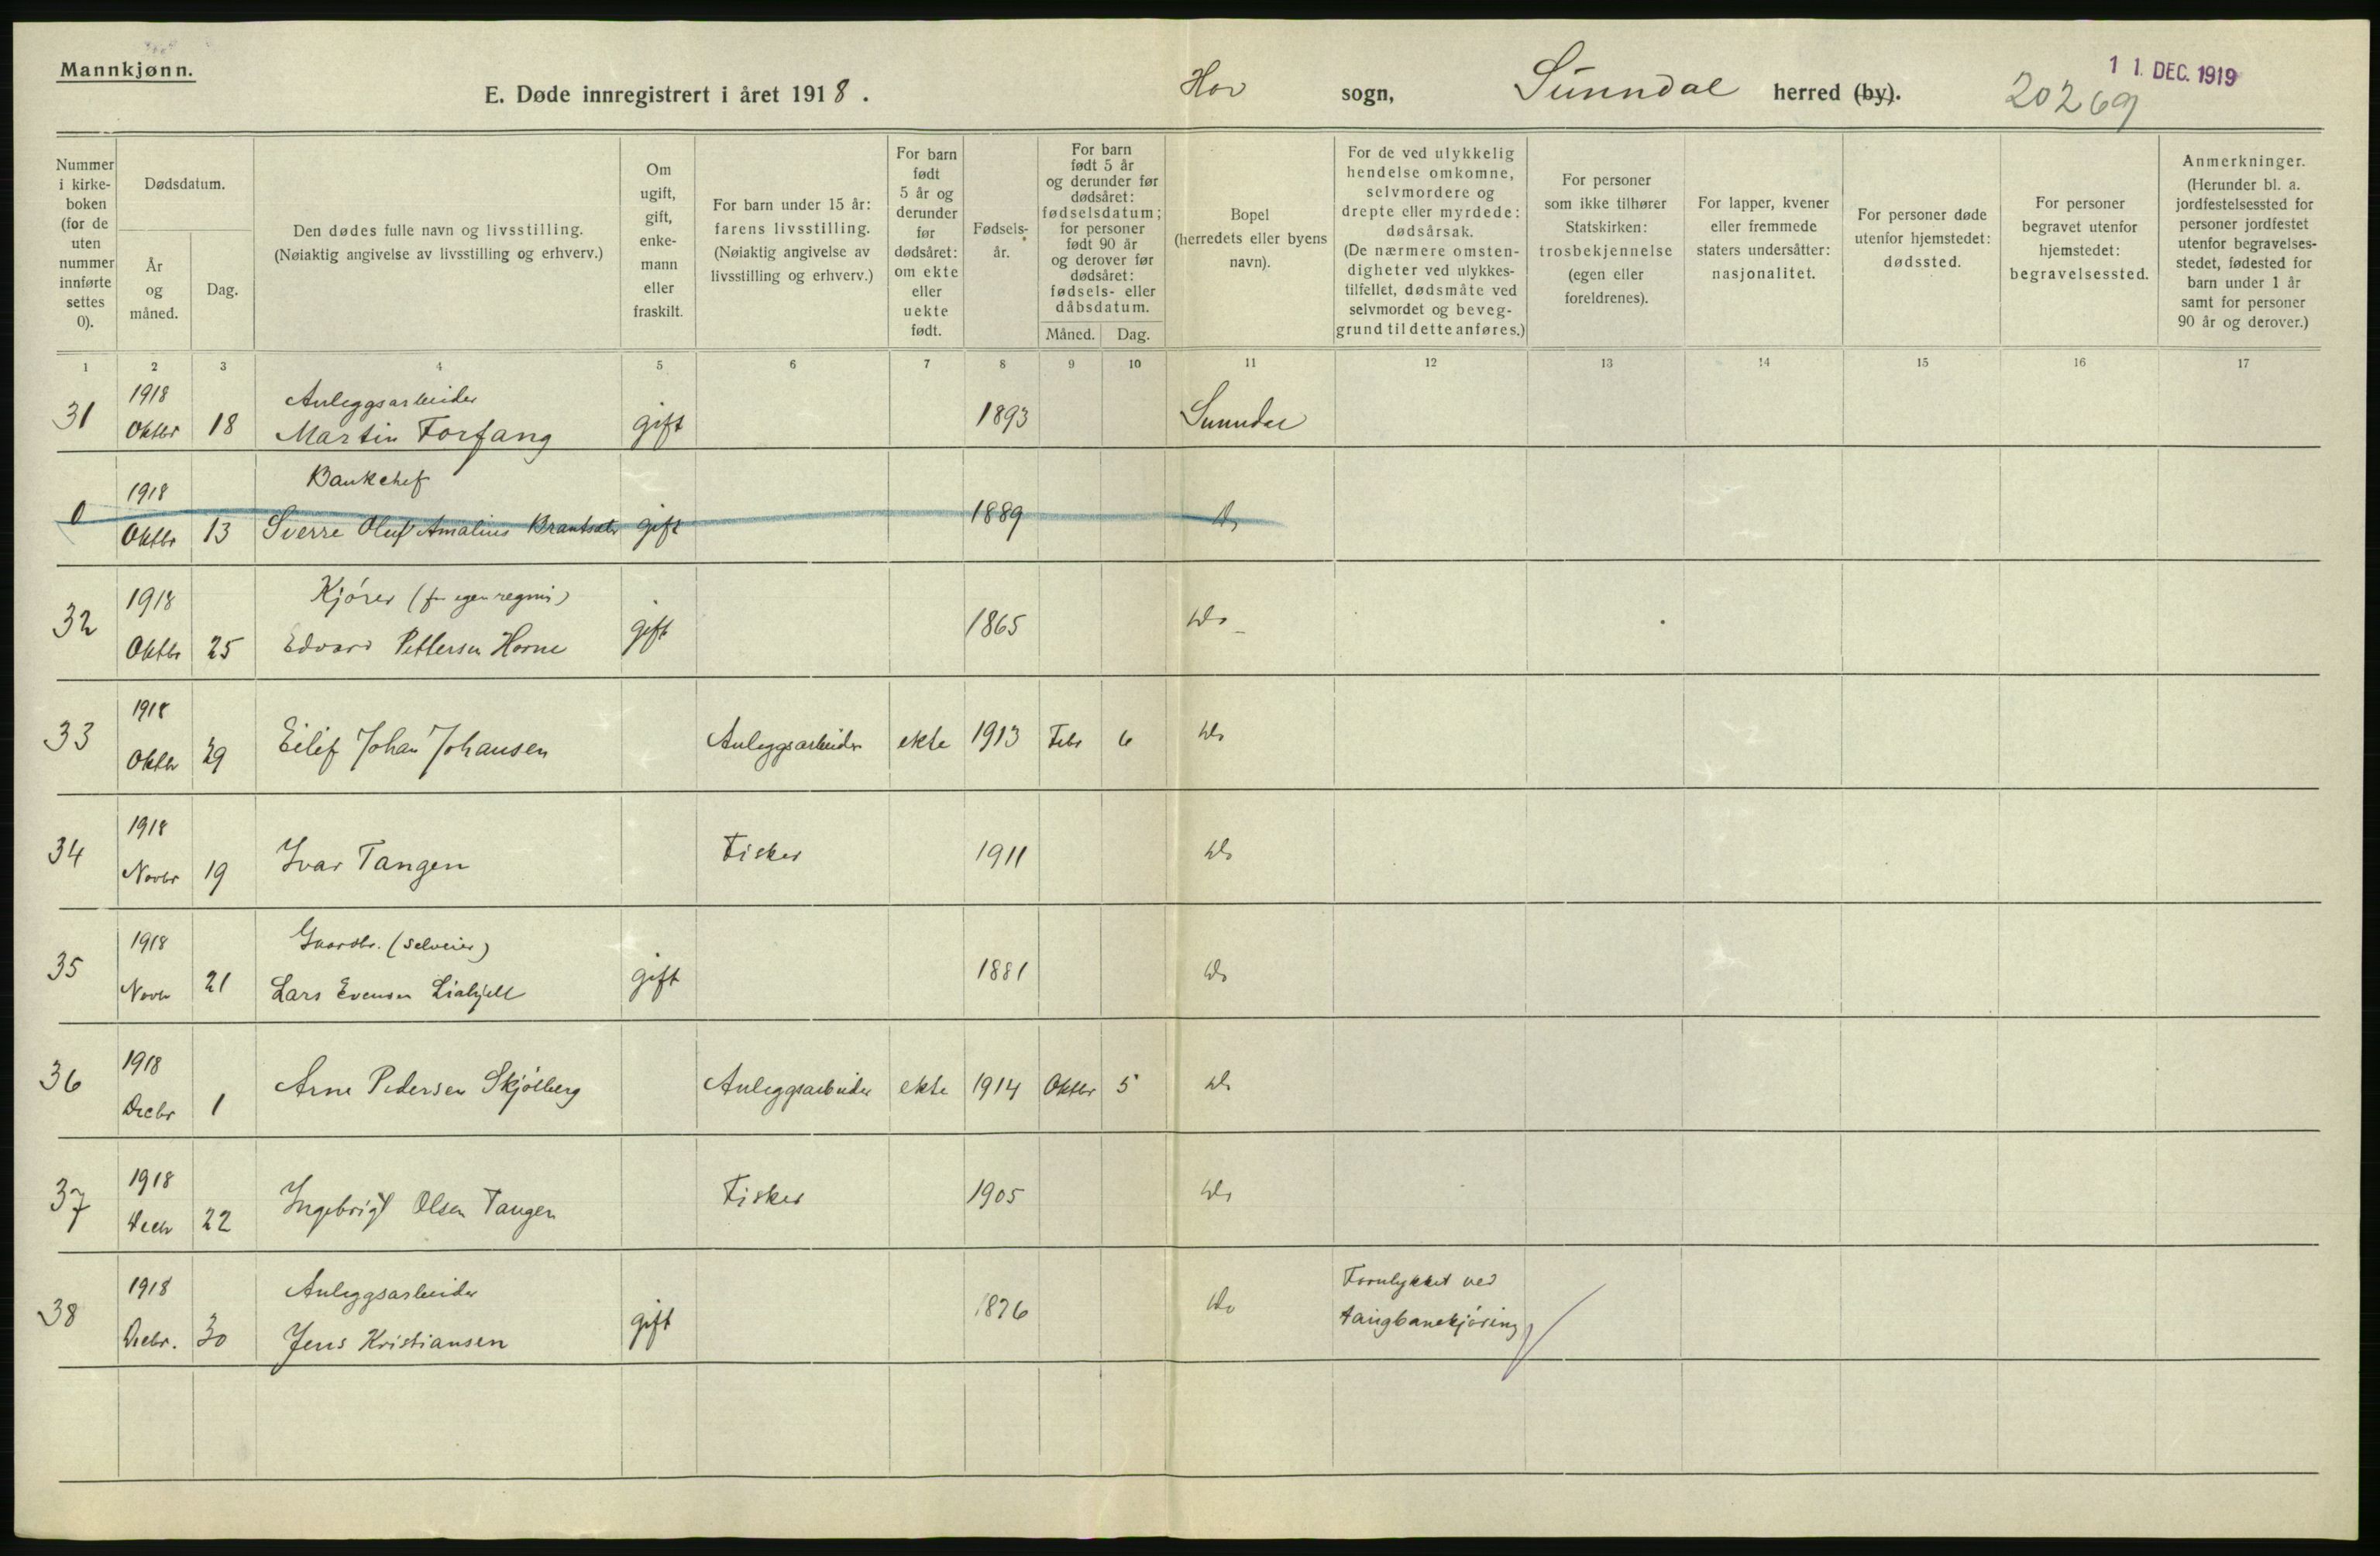 Mannkjønn.
E. Døde innregistrert i året 1918. Hov sogn, Sunndal herred (by). 20269 11. DEC. 1919
Nummer i kirke- boken (for de uten nummer innførte settes 0).
Dødsdatum.
År og måned.
Dag.
Den dødes fulle navn og livsstilling. (Nøiaktig angivelse av livsstilling og erhverv.)
Om ugift, gift, enke- mann eller fraskilt.
For barn under 15 år: farens livsstilling. (Nøiaktig angivelse av livsstilling og erhverv.)
For barn født 5 år og derunder før dødsåret: om ekte eller uekte født.
Fødsels- år.
For barn født 5 år og derunder før dødsåret: fødselsdatum; for personer født 90 år og derover før dødsåret: fødsels- eller dåbsdatum.
Måned. Dag.
Bopel (herredets eller byens navn).
For de ved ulykkelig hendelse omkomne, selvmordere og drepte eller myrdede: dødsårsak. (De nærmere omsten- digheter ved ulykkes- tilfellet, dødsmåte ved selvmordet og beveg- grund til dette anføres.)
For personer som ikke tilhører Statskirken: trosbekjennelse (egen eller foreldrenes).
For lapper, kvener eller fremmede staters undersåtter: nasjonalitet.
For personer døde utenfor hjemstedet: dødssted.
For personer begravet utenfor hjemstedet: begravelsessted.
Anmerkninger. (Herunder bl. a. jordfestelsessted for personer jordfestet utenfor begravelses- stedet, fødested for barn under 1 år samt for personer 90 år og derover.)
1 2 3 4 5 6 7 8 9 10 11 12 13 14 15 16 17
1918 Anleggsarbeider
31 Oktbr 18 Martin Forfang gift 1893 Sunndal
1918 Bankchef
0 Oktbr 13 Sverre Oluf Amalius gift 1889 Do
1918 Kjører (for egen regning)
32 Oktbr 25 Edvard Pettersen Horne gift 1865 Do
1918
33 Oktbr 29 Eilif Johan Johansen Anleggsarbeider ekte 1913 Febr 6 Do
1918
34 Novbr 19 Ivar Tangen Fisker 1911 Do
1918 Gaardbr. (selveier)
35 Novbr 21 Lars Evensen gift 1881 Do
1918
36 Decbr 1 Arne Pedersen Skjølberg Anleggsarbeider ekte 1914 Oktbr 5 Do
1918
37 Decbr 22 Ingebrigt Olsen Tangen Fisker 1905 Do
1918 Anleggsarbeider Forulykket ved
38 Decbr. 30 Jens Kristiansen gift 1876 Do taugbanekjøring